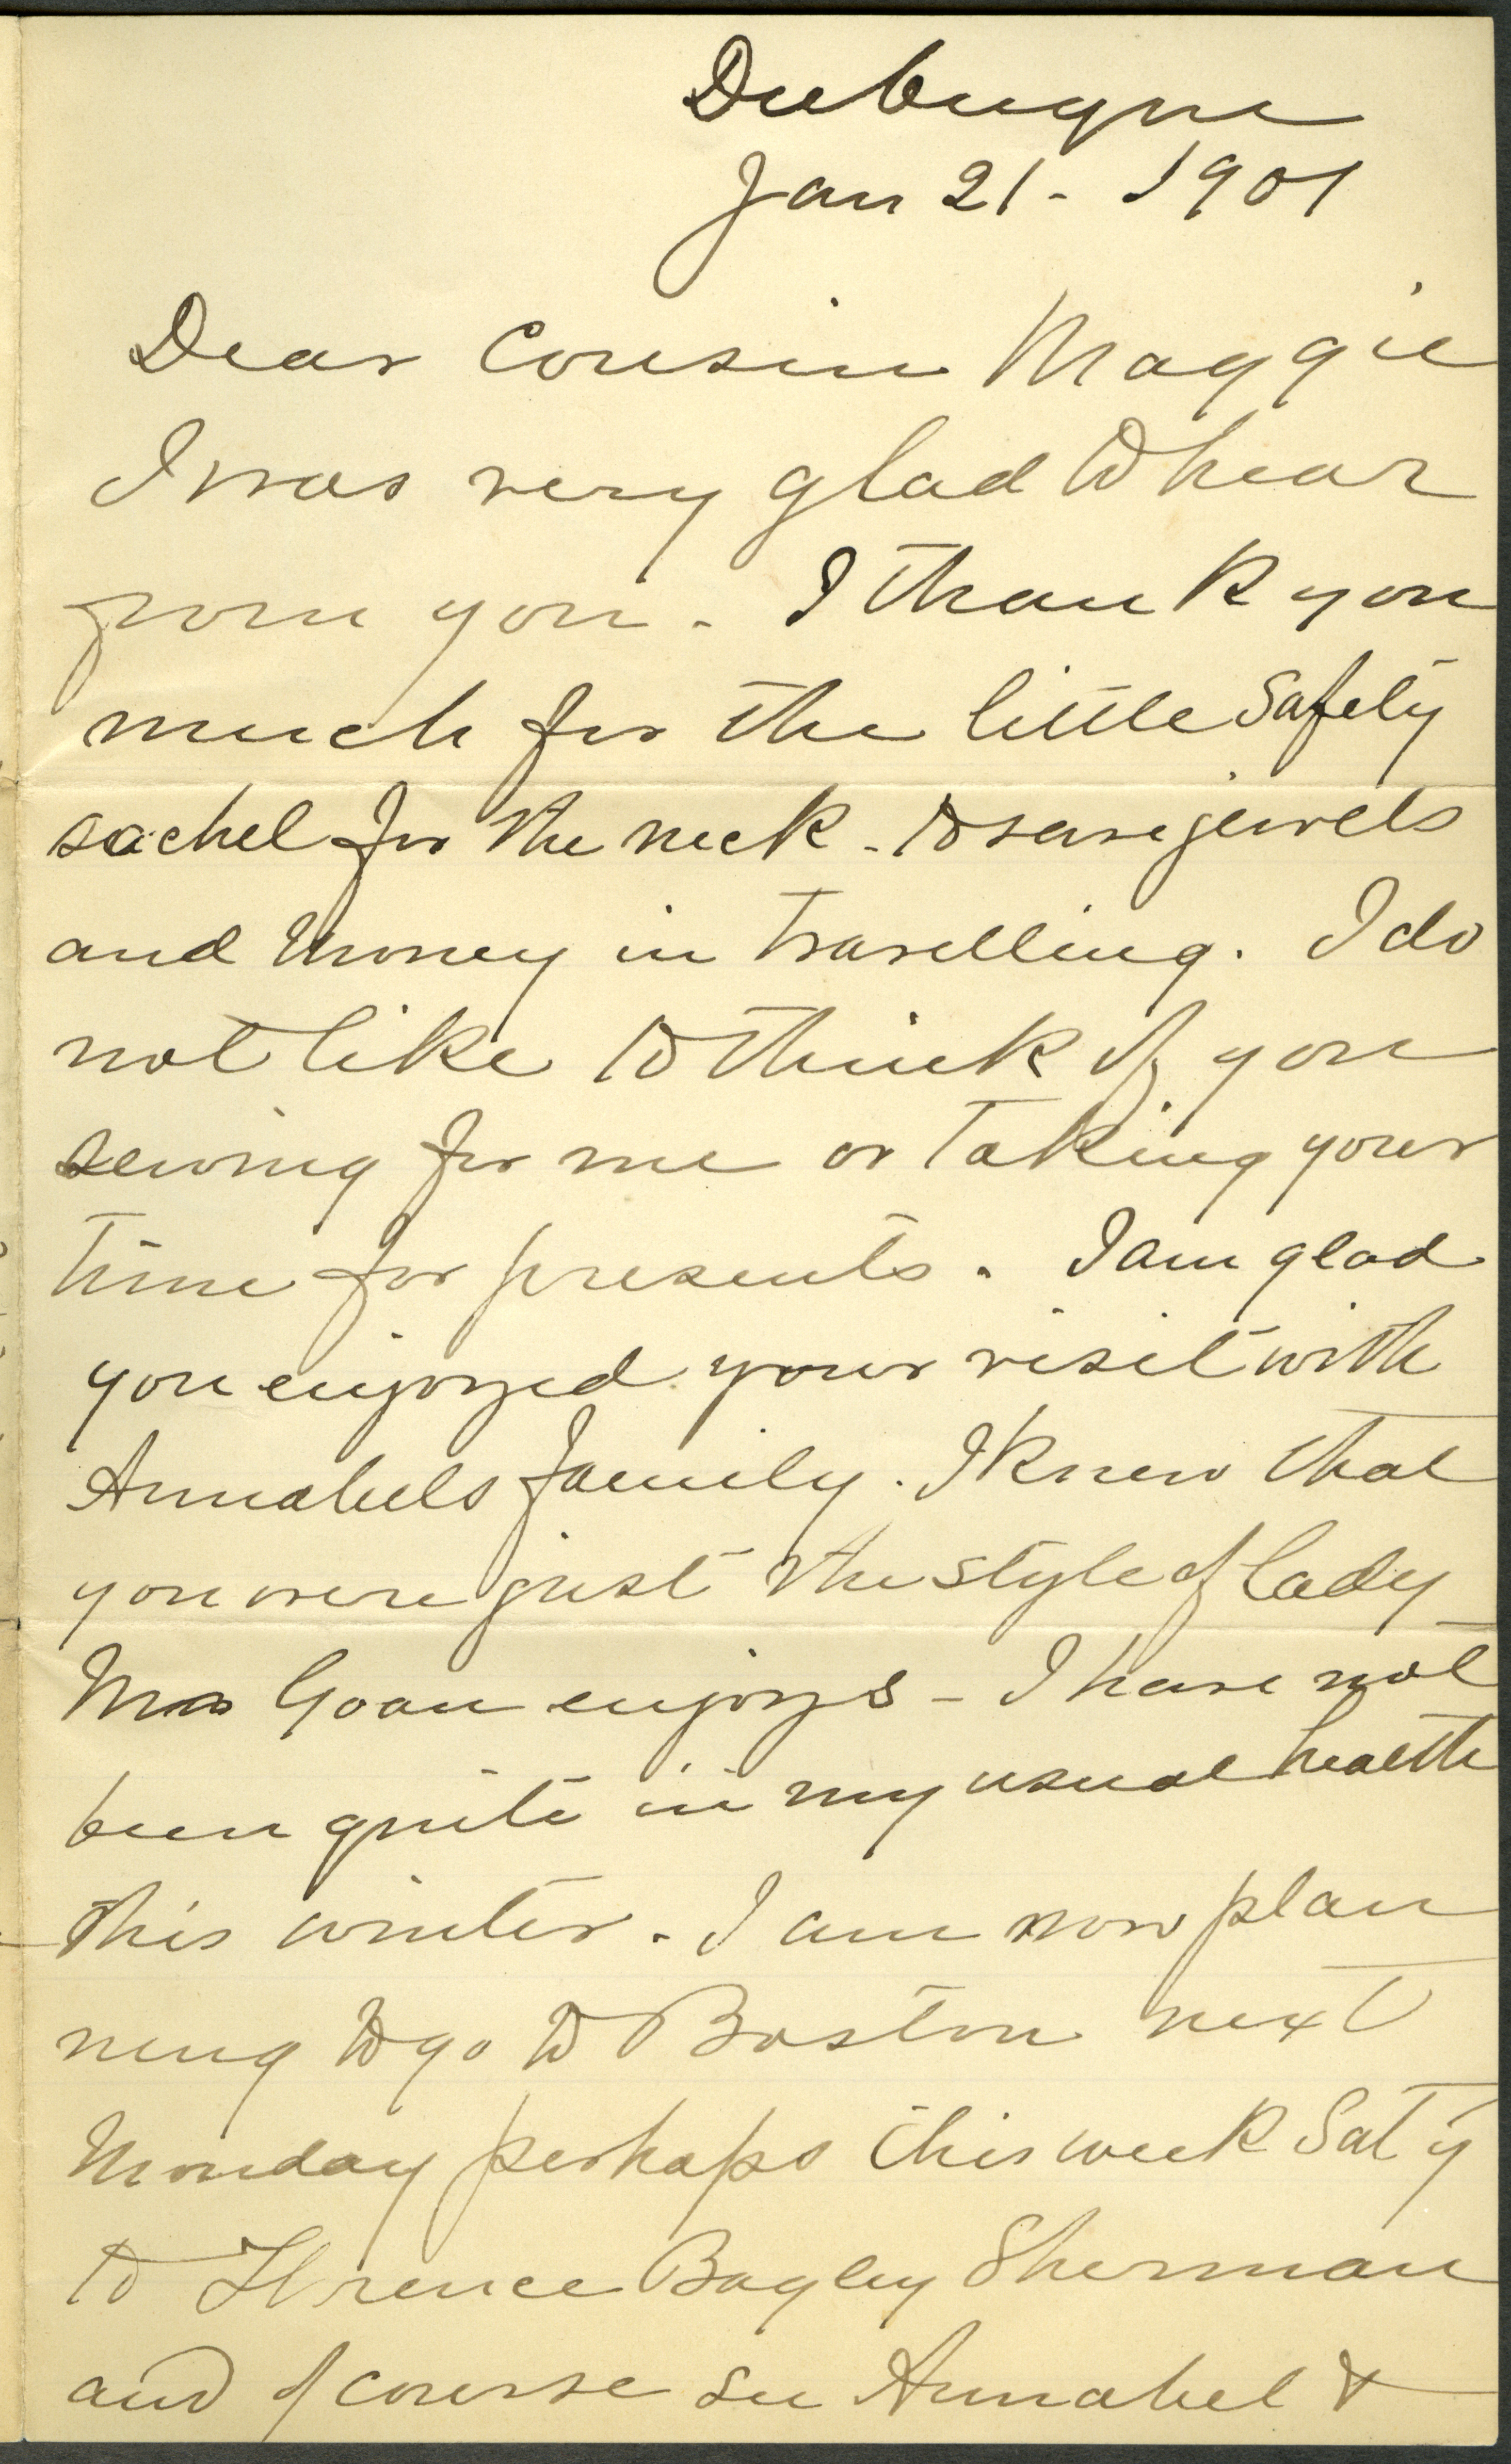 Dubuque
Jan 21 - 1901
Dear Cousin Maggie
I was very glad to hear
from you. I thank you
much for the little safety
sachel for the neck - to save jewels
and money in travelling. I do
not like to think of you
sewing for me or taking your
time for presents. I am glad
you enjoyed your visit with
Annabels family. I knew that
you were just the style of lady
Mrs Goan enjoys - I have not
been quite in my usual health
this winter. I am now plan
ning to go to Boston next
Monday perhaps this week Saty
to Florence Bagley Sherman
and of course see Annabel &